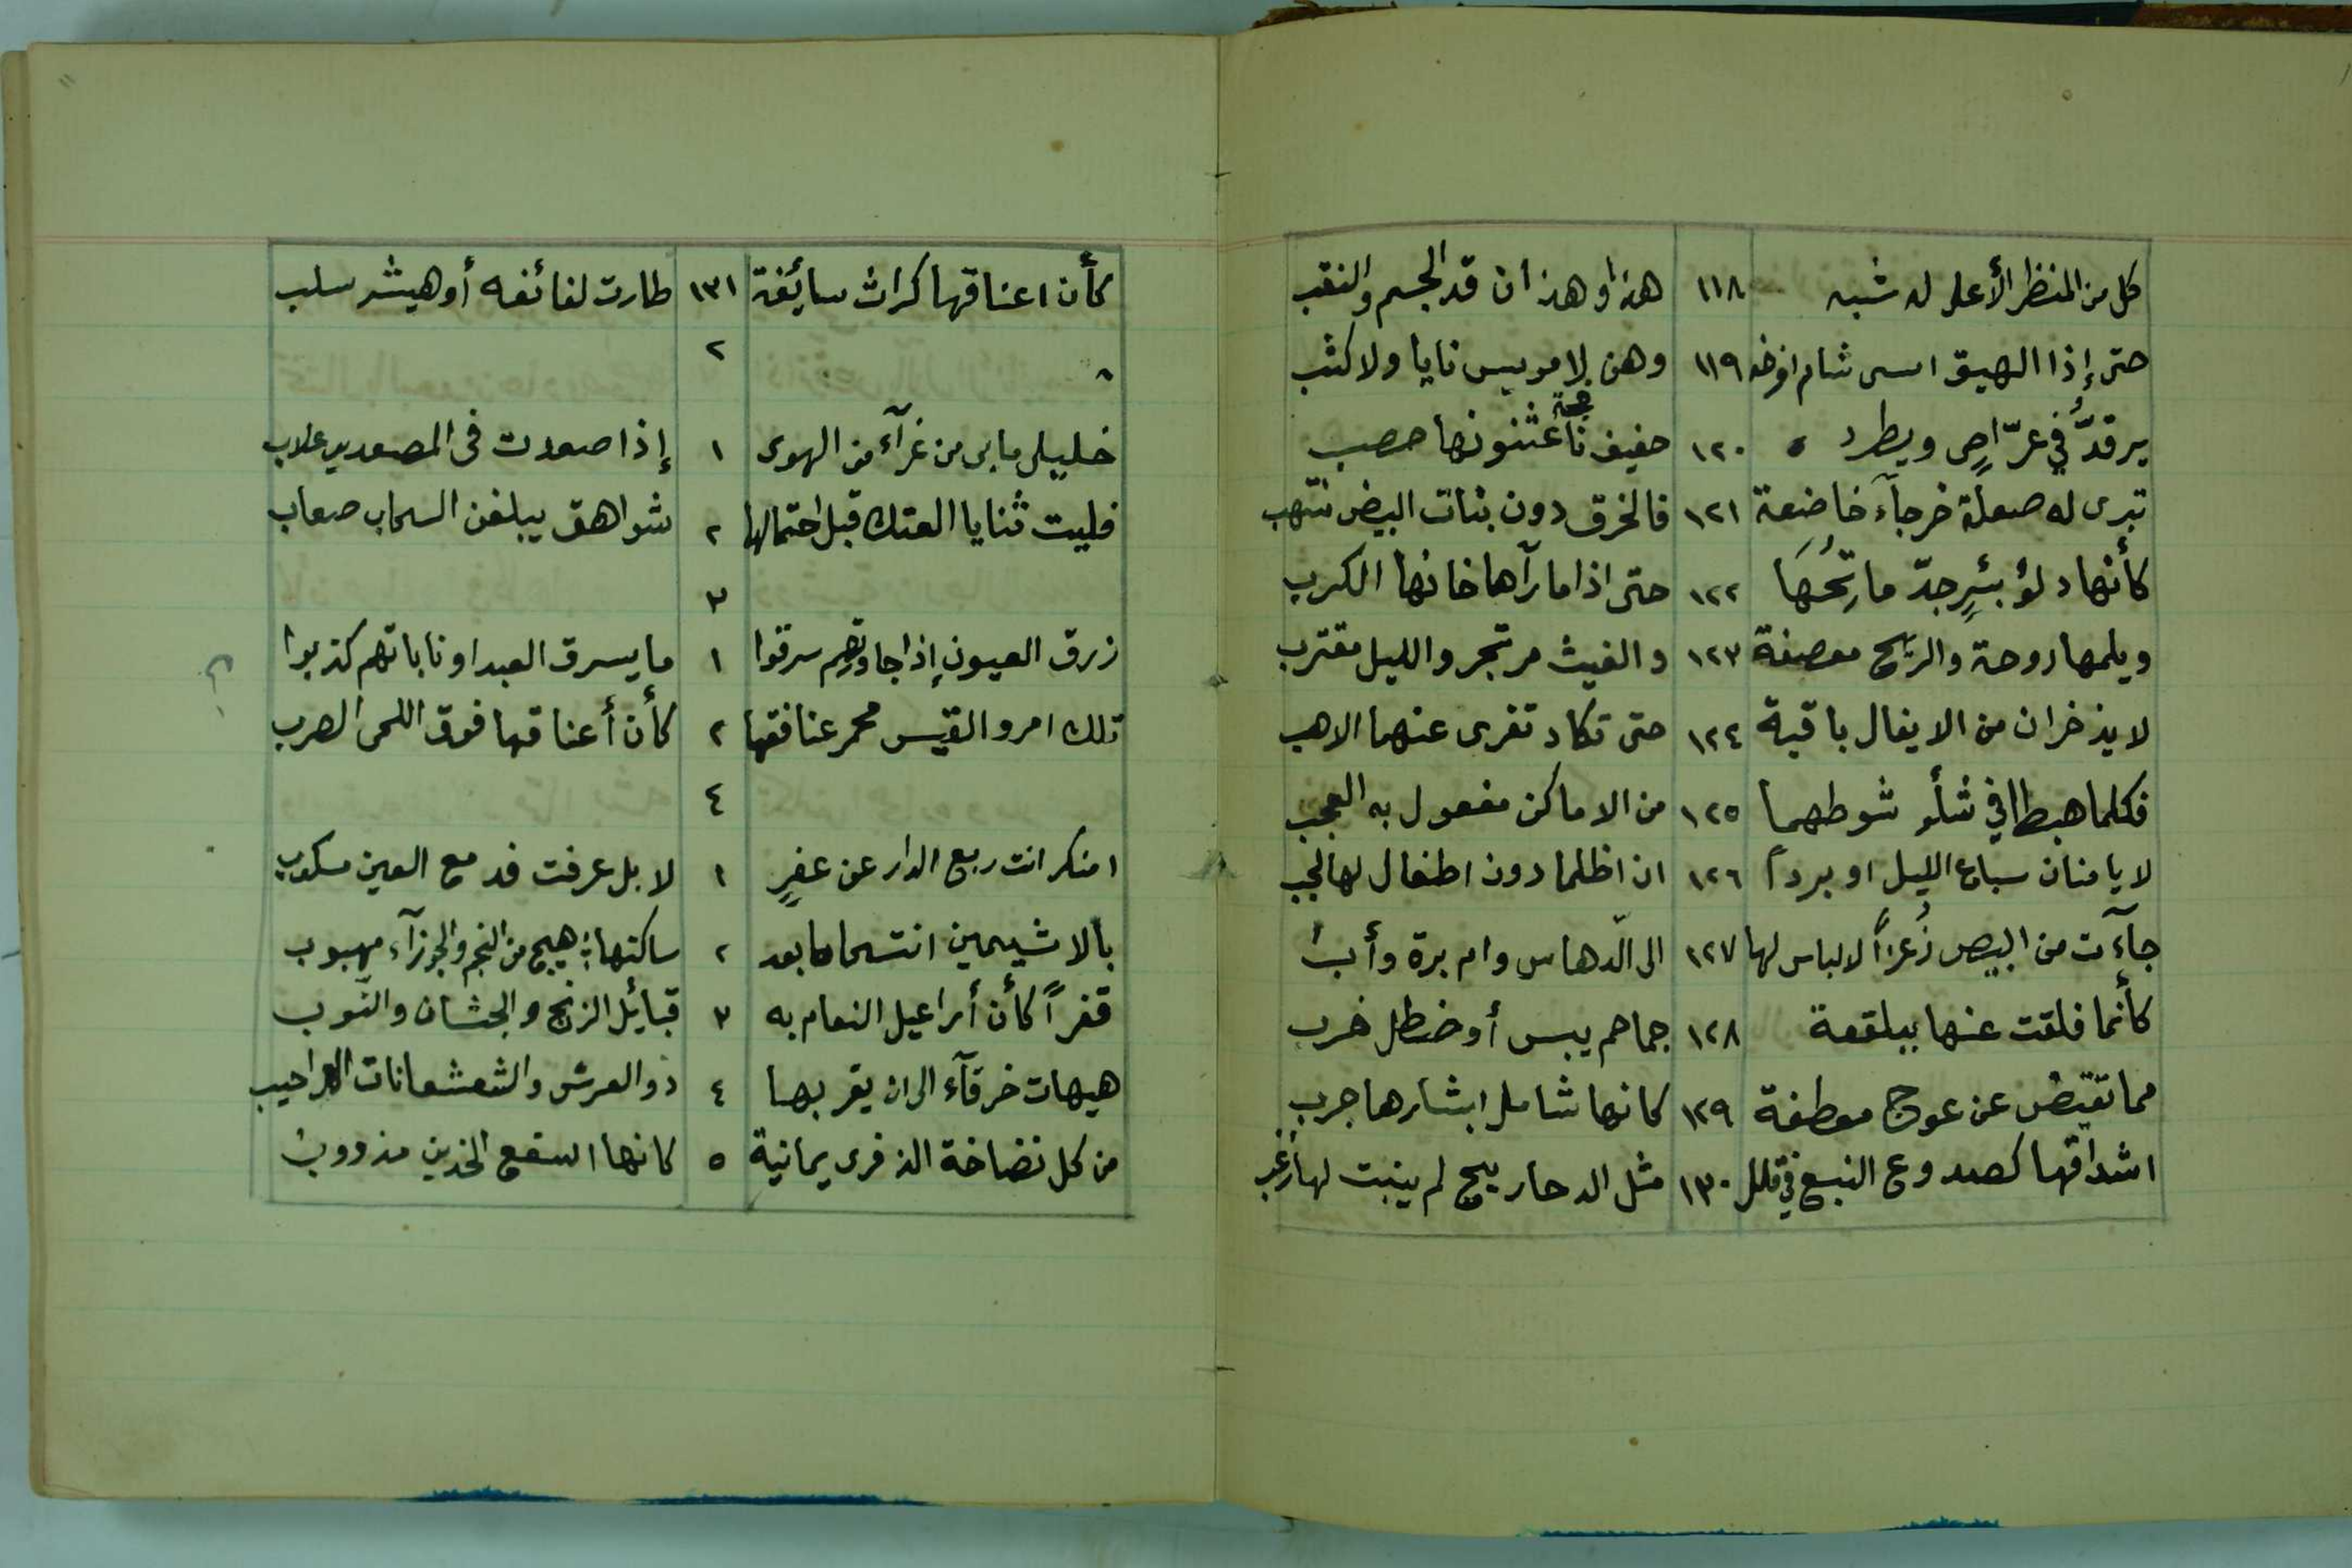 كل من المنظر الأعلى له شبه ١١٨ هذا وهذان قد الجسم والنقب
حتى إذا الهيق امسى شام افرخه ١١٩ وهن لا مويس نايا ولا كثب
يرقدُّ في عرّاصٍ ويطرد ه ١٢٠ حفيف نافجة عثنونها حصب
تبرى له صعلة خرجآء خاضعة ١٢١ فالخرق دون بنات البيض منتهب
كأنها دلؤ بئرٍ جدّ ماتحُها ١٢٢ حتى اذا ما رآها خانها الكرب
ويلمها روحة والريح معصفة ١٢٣ والغيث مرتجز والليل مقترب
لا يذخران من الايغال باقية ١٢٤ حتى تكاد تفرى عنهما الاهب
فكلما هبطا في شأو شوطهما ١٢٥ من الاماكن مفعول به العجب
لا يامنان سباع الليل او برداً ١٢٦ ان اظلما دون اطفال لها لجب
جآءت من البيض زُعراً لا لباس لها ١٢٧ الا الدّهاس وام برة وأبُ
كأنما فلقت عنها ببلقعة ١٢٨ جماجم يبس أو حنظل خرب
مما تقيض عن عوج معطفة ١٢٩ كانها شامل ابشارها جرب
اشداقها كصدوع النبع في قلل ١٣٠ مثل الدحاريج لم ينبت لها زغب
كأن اعناقها كراث سائفة ١٣١ طارت لفائفه أو هيشر سلب
٢
خليلى ما بى من غرآء من الهوى ١ إذا صعدت فى المصعدين غلاب
فليت ثنايا العتك قبل احتمالها ٢ شواهق يبلغن السحاب صعاب
٣
زرق العيون إذا جاورتهم سرقوا ١ ما يسرق العبد او ناباتهم كذبوا
تلك امرو القيس محمر عنافقها ٢ كأن أعناقها فوق اللحى الصرب
٤
امنكر انت ربع الدار عن عفرٍ ١ لا بل عرفت فدمع العين مسكوب
بالاشيمين انتحاها بعد ساكنها ٢ هيج من النجم والجوزآء مهبوب
قفراً كأن أراعيل النعام به ٣ قبائل الزنج والحبشان والنوب
هيهات خرقآء الا ان يقربها ٤ ذو العرش والشعشعانات الهراجيب
من كل نضاخة الذفرى يمانية ٥ كانها اسفع الخدين مذووبُ